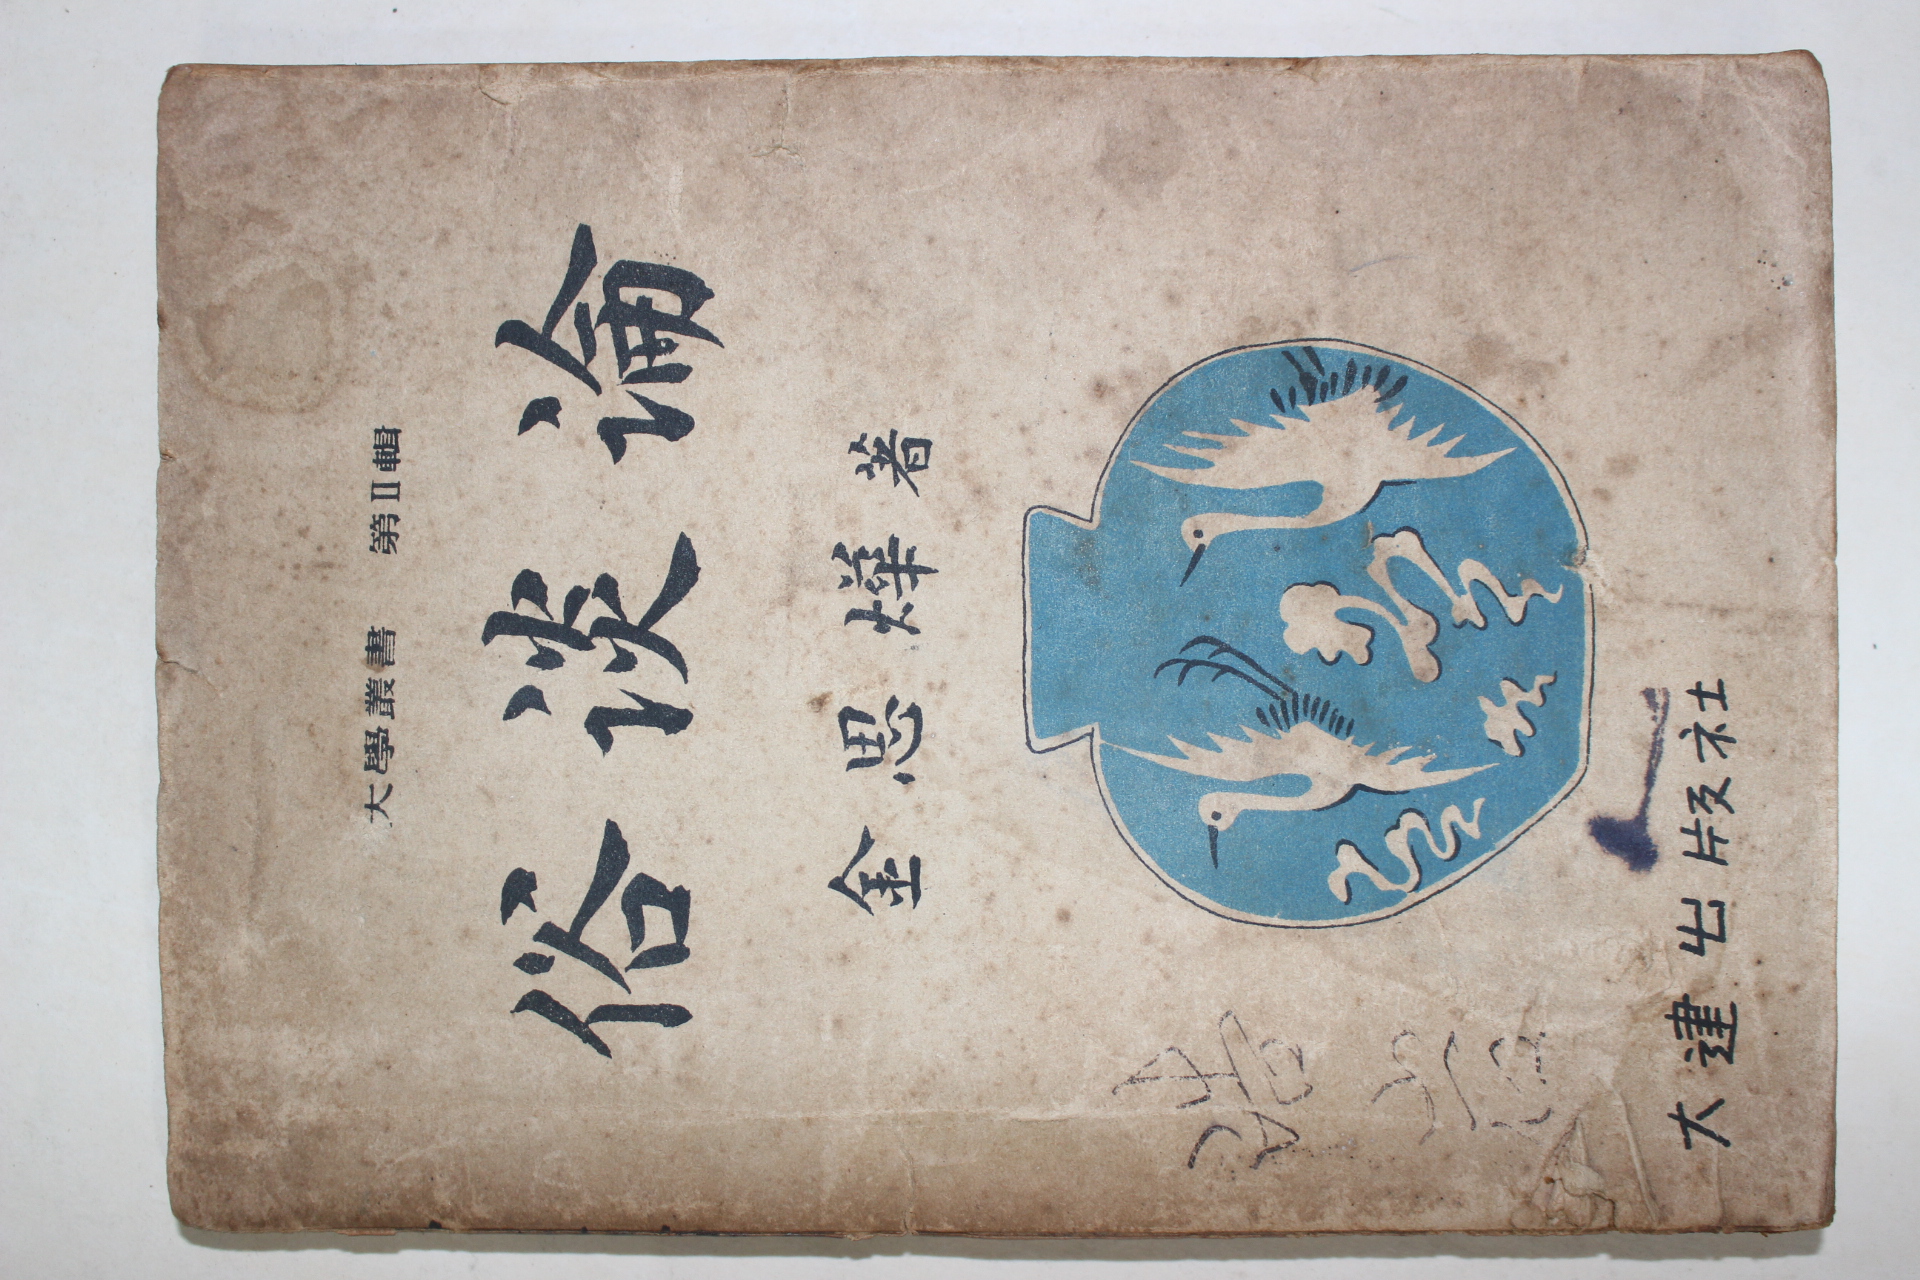 大學叢書 第II輯
俗談論
金思燁著
大建出版社